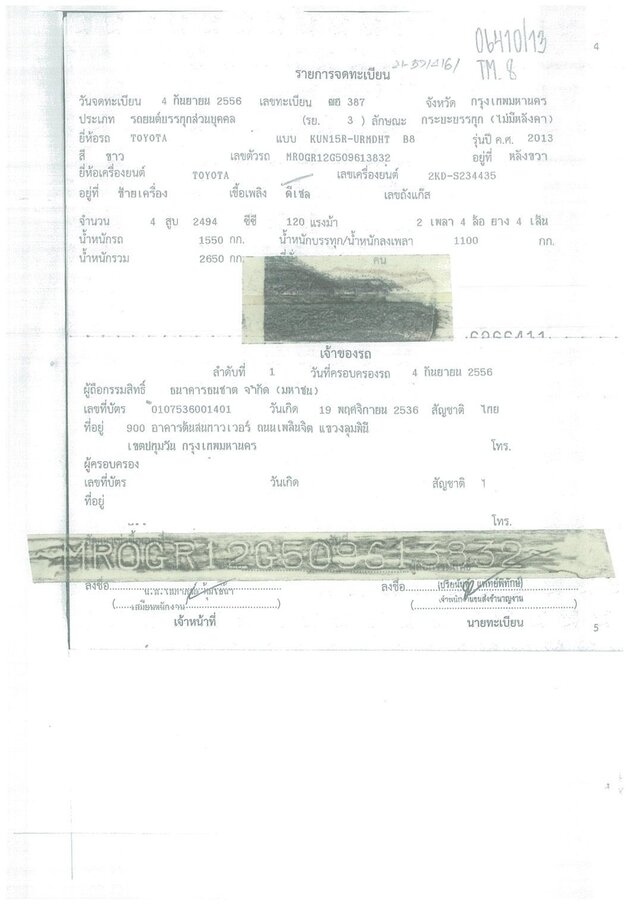 06410/13
4
TM.8
รายการจดทะเบียน
วันจดทะเบียน 4 กันยายน 2556 เลขทะเบียน 387 จังหวัด กรุงเทพมหานคร
ประเภท รถยนต์บรรทุกส่วนบุคคล (รย. 3 ) ลักษณะ กระบะบรรทุก (ไม่มีหลังคา)
ยี่ห้อรถ TOYOTA แบบ KUN15R-URMDHT B8 รุ่นปี ค.ศ. 2013
สี ขาว เลขตัวรถ MROGR12G509613832 อยู่ที่ หลังขวา
ยี่ห้อเครื่องยนต์ TOYOTA เลขเครื่องยนต์ 2KD-S234435
อยู่ที่ ซ้ายเครื่อง เชื้อเพลิง ดีเซล เลขถังแก๊ส
จำนวน 4 สูบ 2494 ซีซี 120 แรงม้า 2 เพลา 4 ล้อ ยาง 4 เส้น
น้ำหนักรถ 1550 กก. น้ำหนักบรรทุก/น้ำหนักลงเพลา 1100 กก.
น้ำหนักรวม 2650 กก. คน
เจ้าของรถ
ลำดับที่ 1 วันที่ครอบครองรถ 4 กันยายน 2556
ผู้ถือกรรมสิทธิ์ ธนาคารธนชาต จำกัด (มหาชน)
เลขที่บัตร 0107536001401 วันเกิด 19 พฤศจิกายน 2536 สัญชาติ ไทย
ที่อยู่ 900 อาคารต้นสนทาวเวอร์ ถนนเพลินจิต แขวงลุมพินี
เขตปทุมวัน กรุงเทพมหานคร โทร.
ผู้ครอบครอง
เลขที่บัตร วันเกิด สัญชาติ
ที่อยู่
โทร.
MROGR12G509613832
ลงชื่อ ลงชื่อ
(เสมียนพนักงาน) เจ้าพนักงานขนส่งชำนาญงาน
เจ้าหน้าที่ นายทะเบียน
5